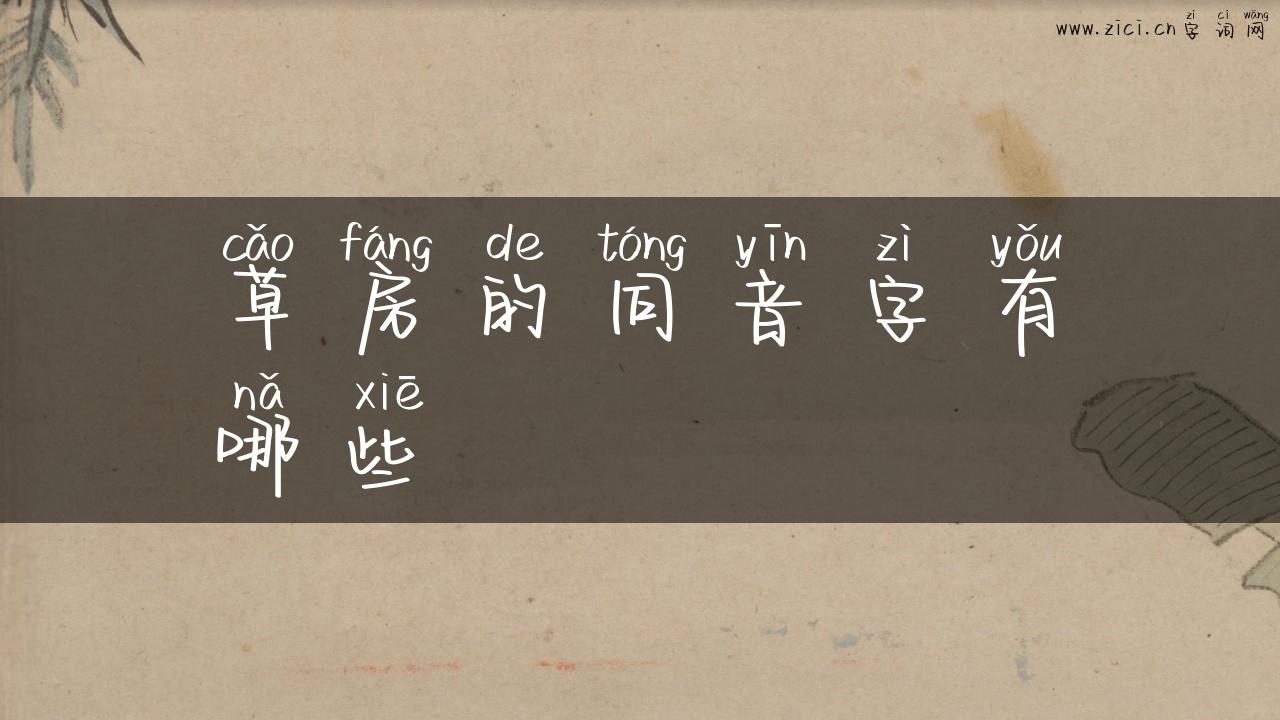 zì cí wǎng
www.zici.cn 字 词 网
cǎo fáng de tóng yīn zì yǒu
草 房 的 同 音 字 有
nǎ xiē
哪 些